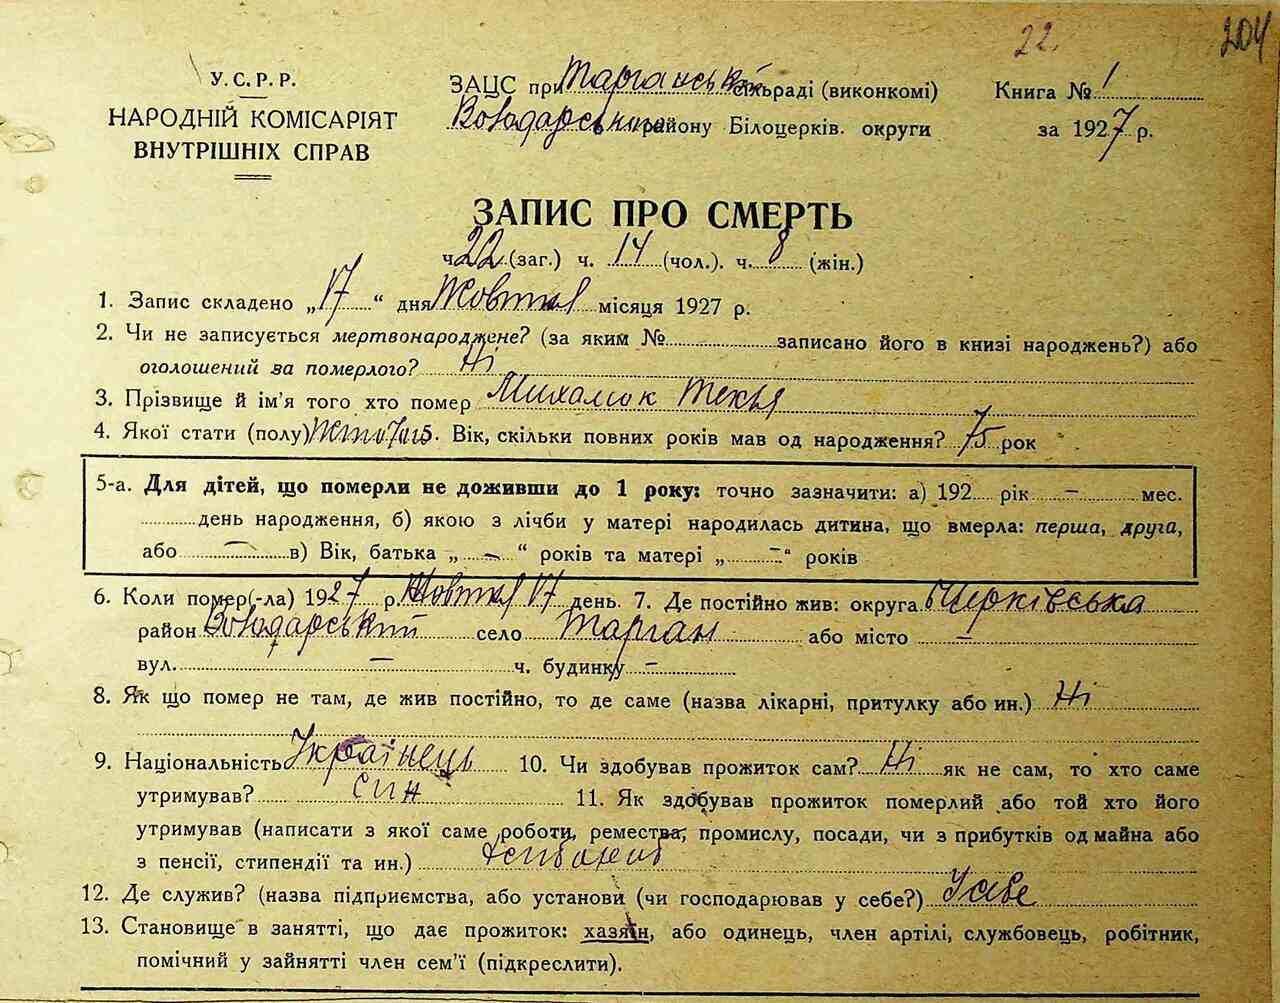 22. 204
У.С.Р.Р.
НАРОДНІЙ КОМІСАРІЯТ
ВНУТРІШНІХ СПРАВ
ЗАЦС при Тарганській сільраді (виконкомі)
Володарського району Білоцерків. округи
Книга № 1
за 1927 р.
ЗАПИС ПРО СМЕРТЬ
ч. 22 (заг.) ч. 14 (чол.). ч. 8 (жін.)
1. Запис складено „17“ дня Жовтня місяця 1927 р.
2. Чи не записується мертвонароджене? (за яким № записано його в книзі народжень?) або
оголошений за померлого? Ні
3. Прізвище й ім'я того хто помер Михалюк Текля
4. Якої стати (полу) 5. Вік, скільки повних років мав од народження? 75 рок
5-а. Для дітей, що померли не доживши до 1 року: точно зазначити: а) 192 рік — мес.
день народження, б) якою з лічби у матері народилась дитина, що вмерла: перша, друга,
або — в) Вік, батька „ — “ років та матері „ — “ років
6. Коли помер(-ла) 1927 р. Жовтня 17 день. 7. Де постійно жив: округа Б Церківська
район Володарський село Тарган або місто —
вул. — ч. будинку —
8. Як що помер не там, де жив постійно, то де саме (назва лікарні, притулку або ин.) Ні
9. Національність Українець 10. Чи здобував прожиток сам? Ні як не сам, то хто саме
утримував? Син 11. Як здобував прожиток померлий або той хто його
утримував (написати з якої саме роботи, ремества, промислу, посади, чи з прибутків од майна або
з пенсії, стипендії та ин.)
12. Де служив? (назва підприємства, або установи (чи господарював у себе?) У себе
13. Становище в занятті, що дає прожиток: хазяїн, або одинець, член артілі, службовець, робітник,
помічний у зайнятті член сем'ї (підкреслити).